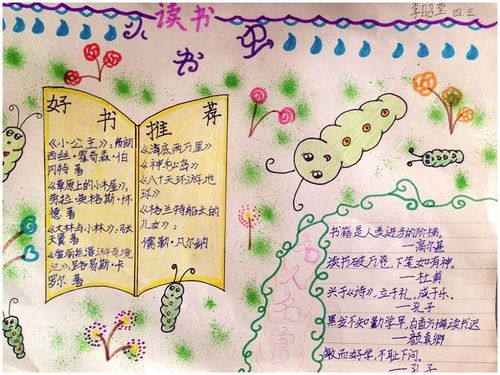 读书
小书虫
四.三
好书推荐
《小公主》:弗朗
西丝·霍奇森·伯
内特 著
《草原上的小木屋》:
劳拉·英格斯·怀
德 著
《大林与小林》:张
天翼 著
《爱丽丝漫游奇境
记》:路易斯·卡
罗尔 著
《海底两万里》
《神秘岛》
《八十天环游地
球》
《格兰特船长的
儿女》:
儒勒·凡尔纳
名人名言
书籍是人类进步的阶梯。
—高尔基
读书破万卷,下笔如有神。
—杜甫
兴于《诗》,立于礼,成于乐。
—孔子
黑发不知勤学早,白首方悔读书迟
—颜真卿
敏而好学,不耻下问。
—孔子